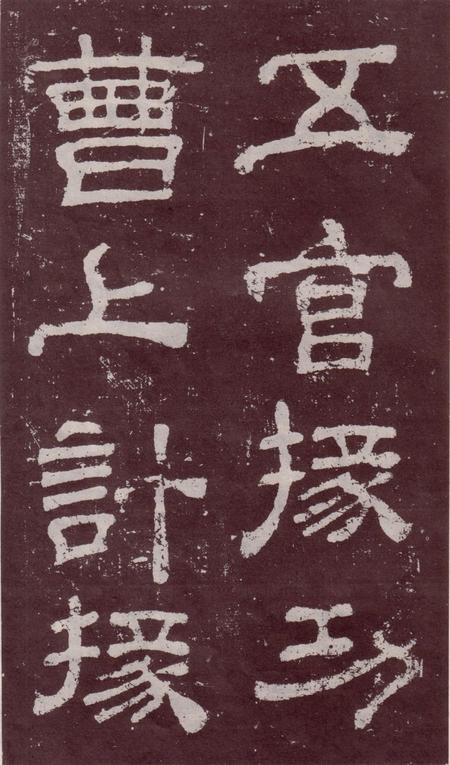 五官掾功
曹上計掾